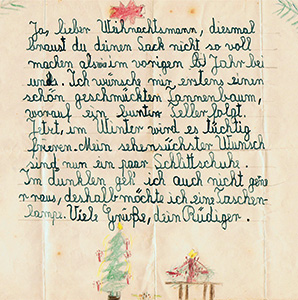 Ja, lieber Weihnachtsmann, diesmal
braust du deinen Sack nicht so voll
machen als im vorigen Jahr bei
uns. Ich wünsche mir erstens einen
schön geschmückten Tannenbaum,
worauf ein bunter Teller folgt.
Jetzt, im Winter wird es tüchtig
frieren. Mein sehensüchster Wunsch
sind nun ein paar Schlittschuhe.
Im dunklen geh' ich auch nicht gene
r raus, deshalb möchte ich eine Taschen-
lampe. Viele Grüße, dein Rüdiger.